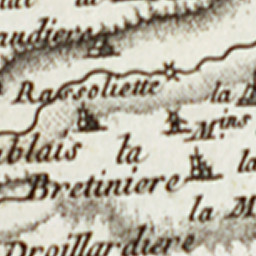 la
audiere
Rassoliette la
M.ins
ablais la
la
Bretiniere
la M
Droillardiere